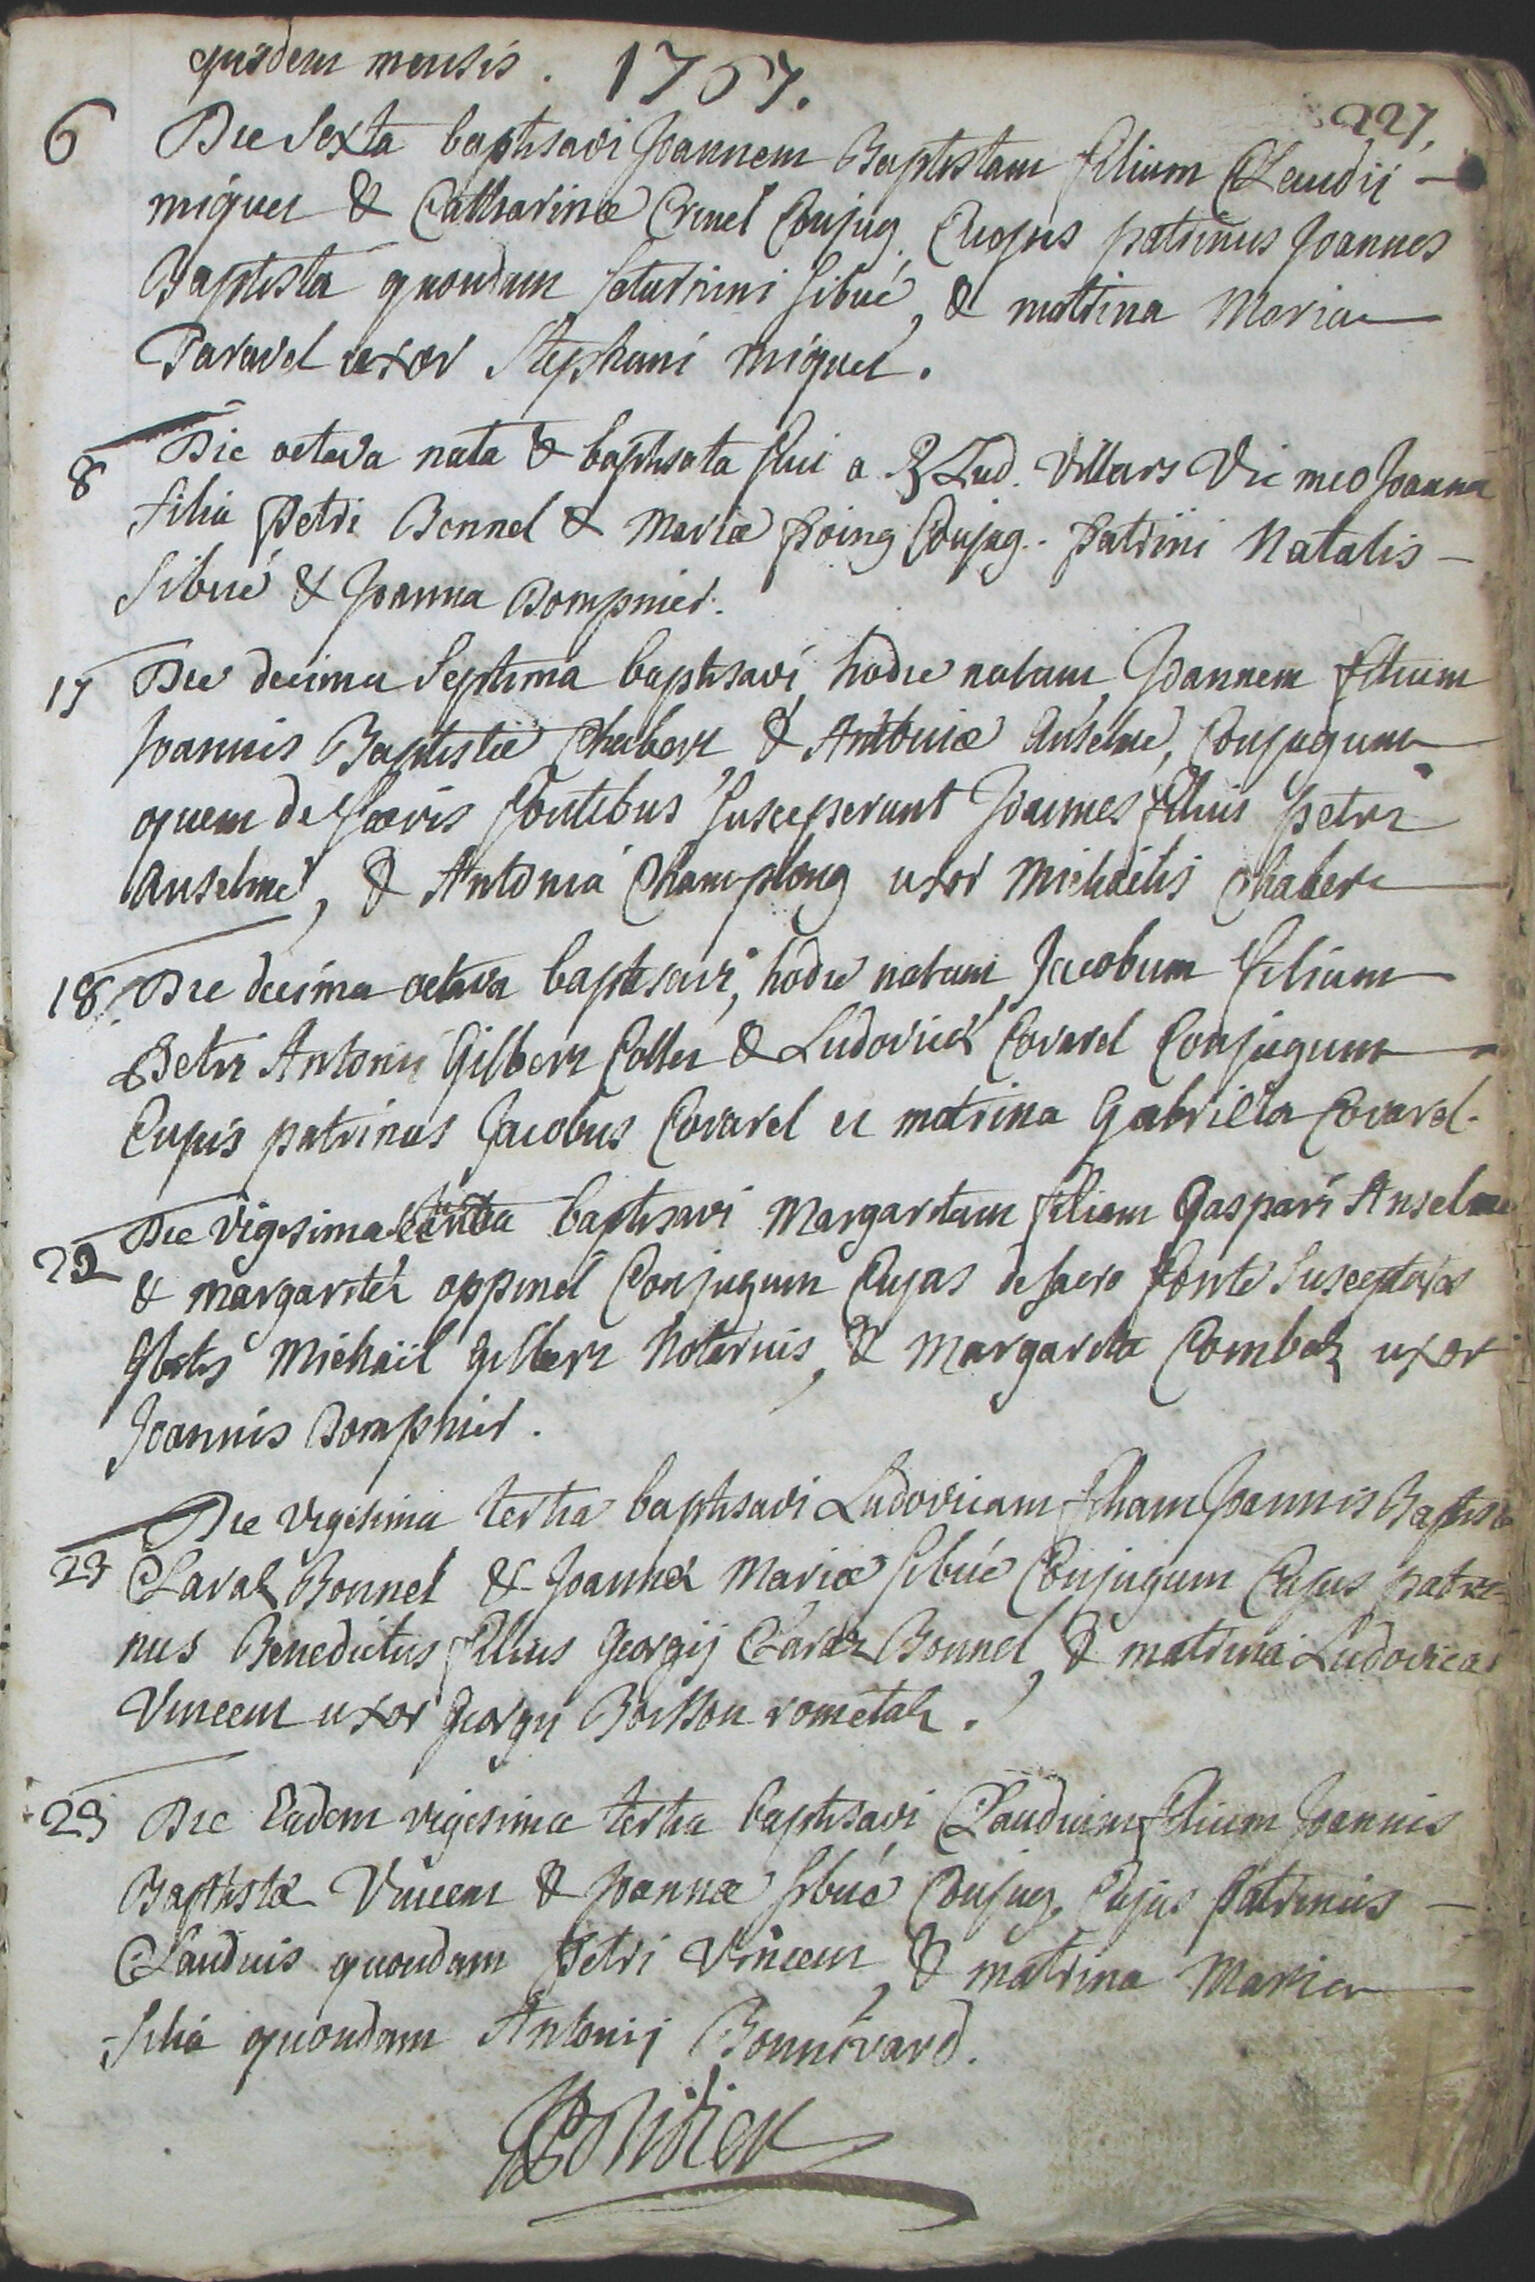 ejusdem mensis. 1757.
227.
6 Die Sexta baptisavi Joannem Baptistam filium Claudii -
miquet & Catharinæ Crinel Conjug. Cujus patrinus Joannes
Baptista quondam Saturnini Sibué, & matrina Maria
Paravel uxor Stephani miquet.
8 Die octava nata & baptisata fuit a R Lud. Villars Vic meo Joanna
filia Petri Bonnel & Mariæ Poing Conjug. Patrini Natalis -
Sibué & Joanna Dompnier.
17 Die decima Septima baptisavi, hodie natum, Joannem filium
Joannis Baptistæ Chabert & Antoniæ Anselme, Conjugum
quem de Sacris fontibus Susceperunt Joannes filius Petri
Anselme, & Antonia Champlong uxor Michaëlis Chabert
18 Die decima octava baptisavi, hodie natum, Jacobum filium
Petri Antonii Gilbert Collet & Ludovicæ Covarel Conjugum
Cujus patrinus Jacobus Covarel et matrina Gabriella Covarel.
22 Die Vigesima baptisavi Margaritam filiam Gaspari Anselme
& margaritæ oppinel Conjugum Cujus de sacro fonte Susceptores
Michaël Gilbert Notarius, & Margarita Combet uxor
Joannis Dompnier.
23 Die vigesima tertia baptisavi Ludovicam filiam Joannis Baptistæ
Claraz Bonnel & Joannæ Mariæ Sibué Conjugum Cujus patri-
nus Benedictus filius Georgij Claraz Bonnel, & matrina Ludovica
Vincent uxor Georgii Boisson rometaz.
23 Die Eadem vigesima tertia baptisavi Claudium filium Joannis
Baptistæ Vincent & Joannæ Sibué Conjug. Cujus Patrinus -
Claudius quondam Petri Vincent, & matrina Maria
filia quondam Antonij Bonnivard.